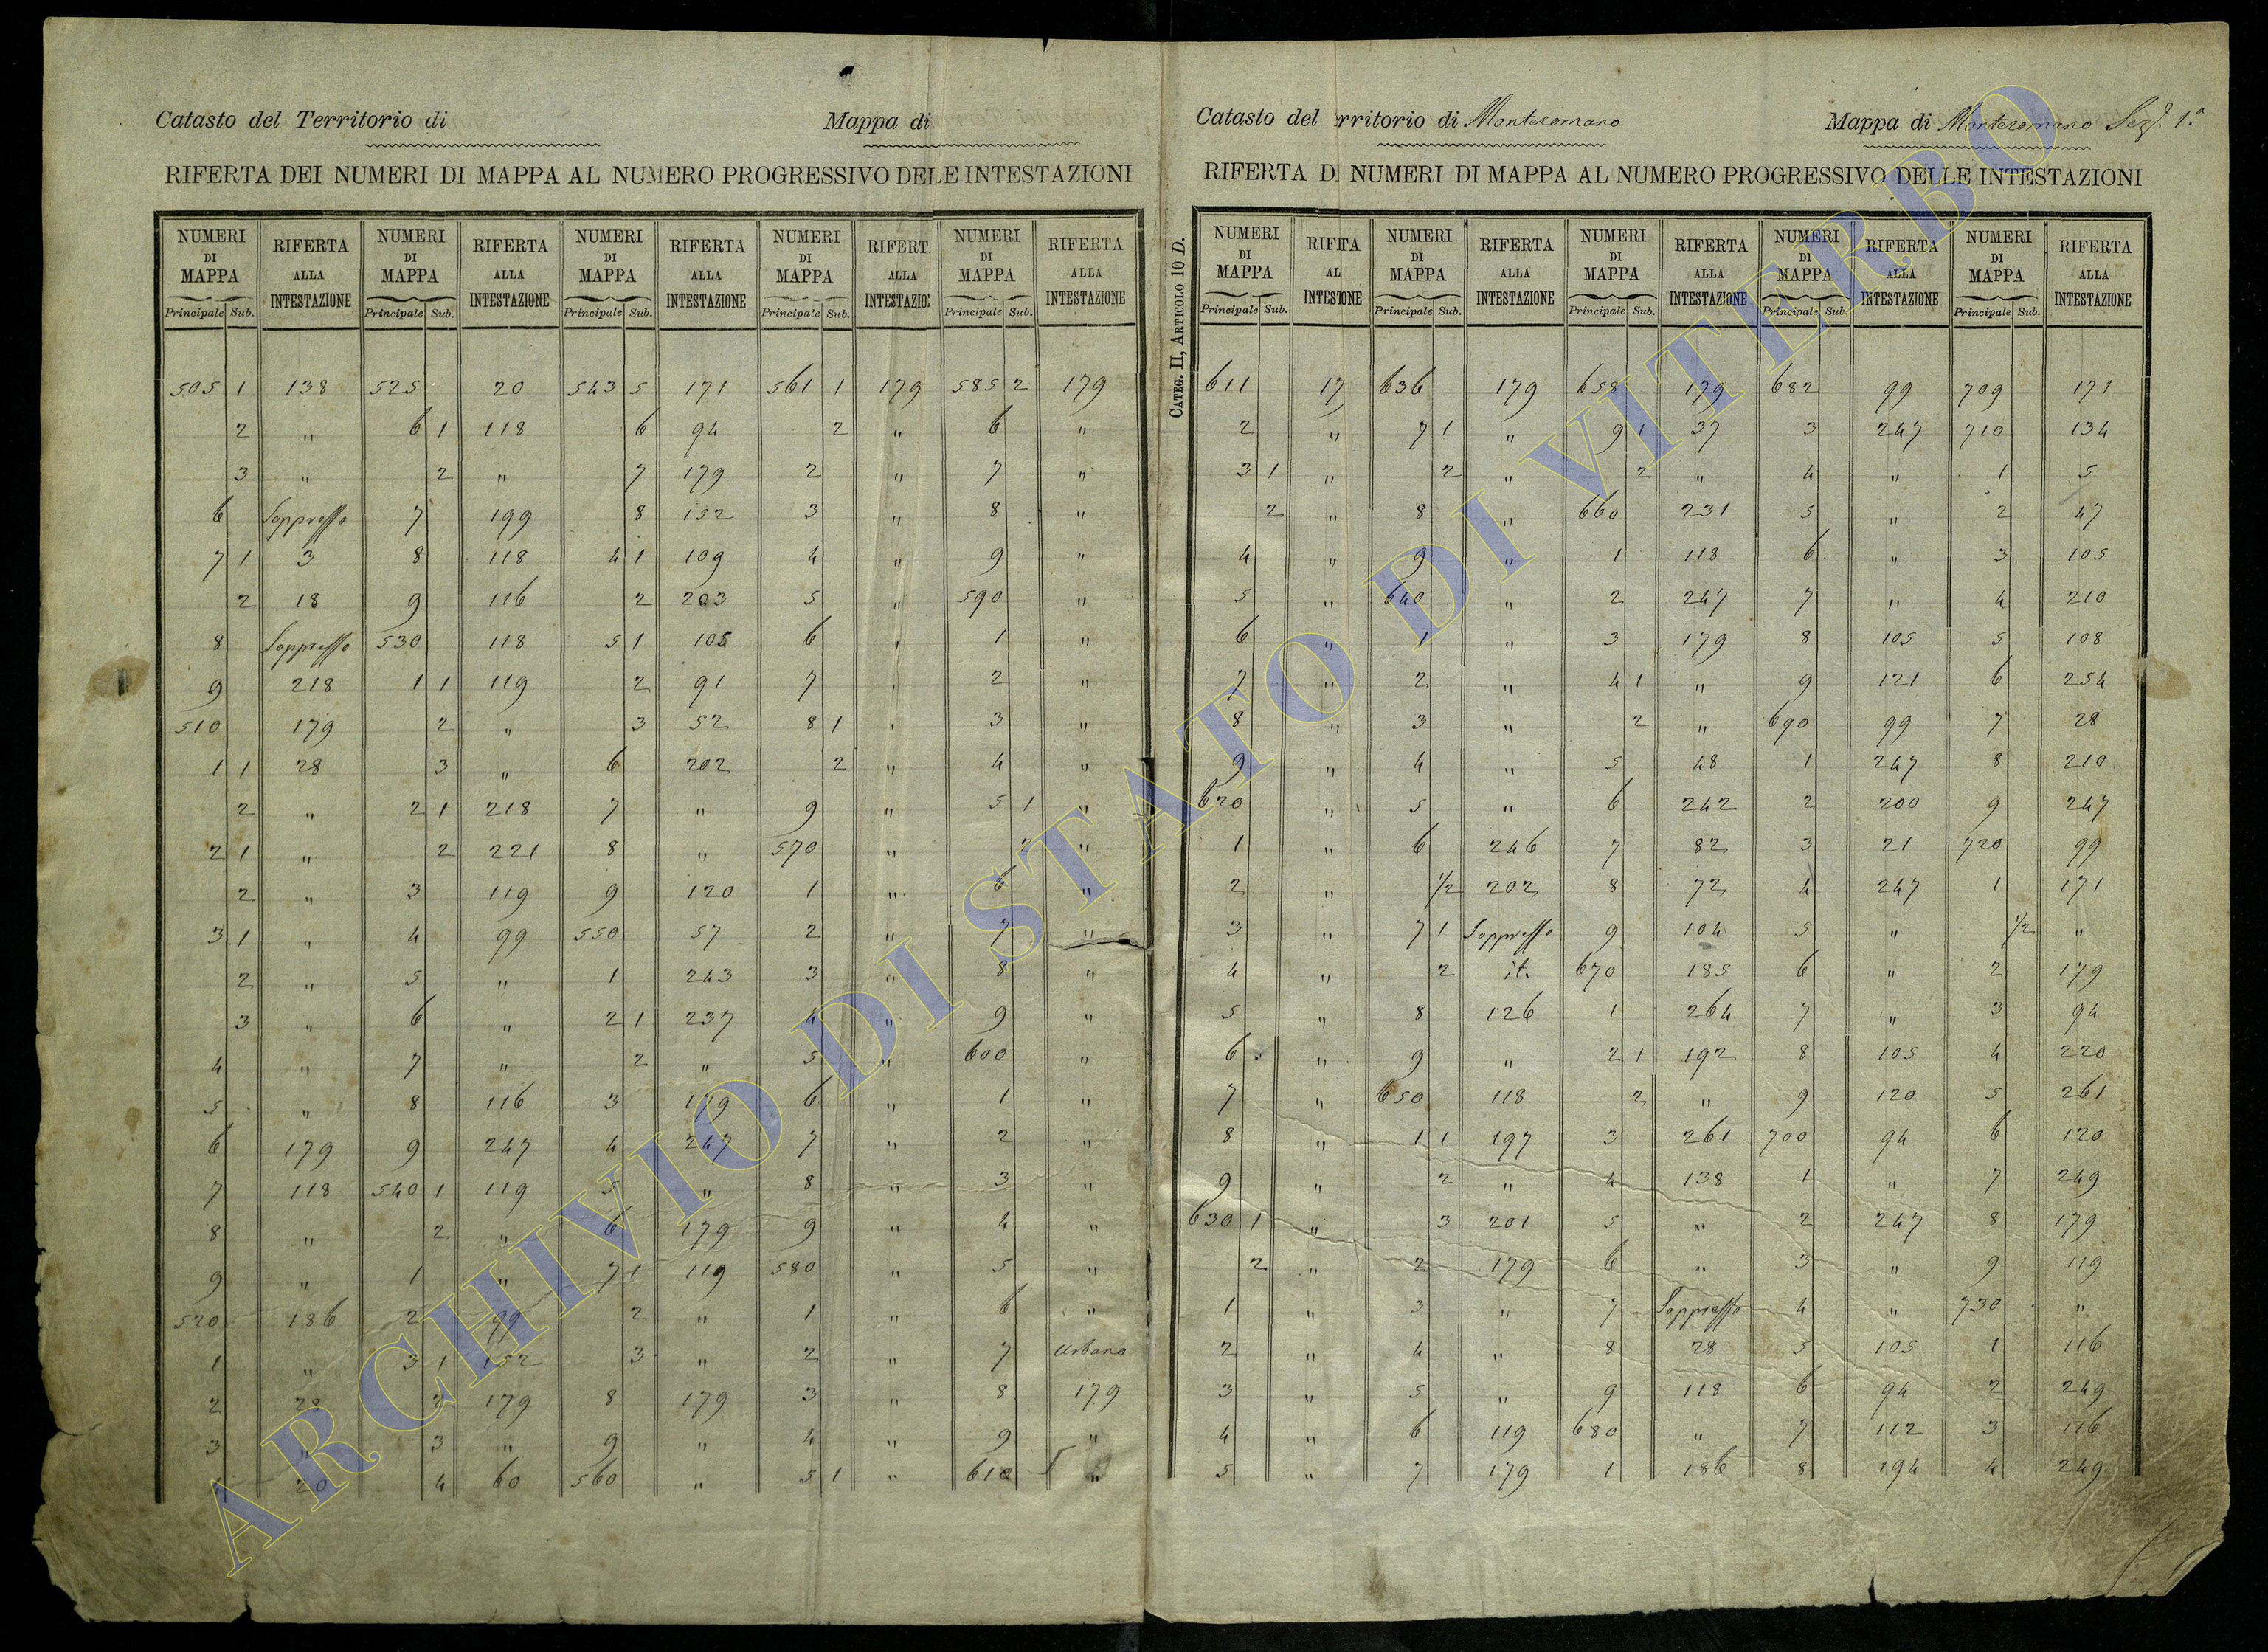 Catasto del Territorio di
Mappa di
RIFERTA DEI NUMERI DI MAPPA AL NUMERO PROGRESSIVO DELLE INTESTAZIONI
NUMERI DI MAPPA RIFERTA ALLA INTESTAZIONE NUMERI DI MAPPA RIFERTA ALLA INTESTAZIONE NUMERI DI MAPPA RIFERTA ALLA INTESTAZIONE NUMERI DI MAPPA RIFERT ALLA INTESTAZIO NUMERI DI MAPPA RIFERTA ALLA INTESTAZIONE
Principale Sub. Principale Sub. Principale Sub. Principale Sub. Principale Sub.
505 1 138 525 20 543 5 171 561 1 179 585 2 179
2 " 6 1 118 6 94 2 " 6 "
3 " 2 " 7 179 2 " 7 "
6 Soppresso 7 199 8 152 3 " 8 "
7 1 3 8 118 4 1 109 4 " 9 "
2 18 9 116 2 203 5 " 590 "
8 Soppresso 530 118 5 1 105 6 " 1 "
9 218 1 1 119 2 91 7 " 2 "
510 179 2 " 3 52 8 1 " 3 "
1 1 28 3 " 6 202 2 " 4 "
2 " 2 1 218 7 " 9 " 5 1 "
2 1 " 2 221 8 " 570 " 2 "
2 " 3 119 9 120 1 " 6 "
3 1 " 4 99 550 57 2 " 7 "
2 " 5 " 1 243 3 " 8 "
3 " 6 " 2 1 237 4 " 9 "
4 " 7 " 2 " 5 " 600 "
5 " 8 116 3 179 6 " 1 "
6 179 9 247 4 247 7 " 2 "
7 118 540 1 119 5 " 8 " 3 "
8 " 2 " 6 179 9 " 4 "
9 " 1 " 7 1 119 580 " 5 "
520 186 2 99 2 " 1 " 6 "
1 " 3 1 152 3 " 2 " 7 Urbano
2 28 2 179 8 179 3 " 8 179
3 " 3 " 9 " 4 " 9 "
4 20 4 60 560 " 5 1 " 610 "
CATEG. II, ARTICOLO 10 D.
Catasto del rritorio di Monteromano
Mappa di Monteromano Sez. 1.a
RIFERTA D NUMERI DI MAPPA AL NUMERO PROGRESSIVO DELLE INTESTAZIONI
NUMERI DI MAPPA RIFETA AL INTESTONE NUMERI DI MAPPA RIFERTA ALLA INTESTAZIONE NUMERI DI MAPPA RIFERTA ALLA INTESTAZIONE NUMERI DI MAPPA RIFERTA ALLA INTESTAZIONE NUMERI DI MAPPA RIFERTA ALLA INTESTAZIONE
Principale Sub. Principale Sub. Principale Sub. Principale Sub. Principale Sub.
611 17 636 179 658 179 682 99 709 171
2 " 7 1 " 9 1 37 3 247 710 134
3 1 " 2 " 2 " 4 " 1 5
2 " 8 " 660 231 5 " 2 47
4 " 9 " 1 118 6 " 3 105
5 " 640 " 2 247 7 " 4 210
6 " 1 " 3 179 8 105 5 108
7 " 2 " 4 1 " 9 121 6 254
8 " 3 " 2 " 690 99 7 28
9 " 4 " 5 48 1 247 8 210
620 " 5 " 6 242 2 200 9 247
1 " 6 246 7 82 3 21 720 99
2 " 1/2 202 8 72 4 247 1 171
3 " 7 1 Soppresso 9 104 5 " 1/2 "
4 " 2 it. 670 185 6 " 2 179
5 " 8 126 1 264 7 " 3 94
6 " 9 " 2 1 192 8 105 4 220
7 " 650 118 2 " 9 120 5 261
8 " 1 1 197 3 261 700 94 6 120
9 " 2 " 4 138 1 " 7 249
630 1 " 3 201 5 " 2 247 8 179
2 " 2 179 6 " 3 " 9 119
1 " 3 " 7 Soppresso 4 " 730 "
2 " 4 " 8 28 5 105 1 116
3 " 5 " 9 118 6 94 2 249
4 " 6 119 680 " 7 112 3 116
5 " 7 179 1 186 8 194 4 249
ARCHIVIO DI STATO DI VITERBO